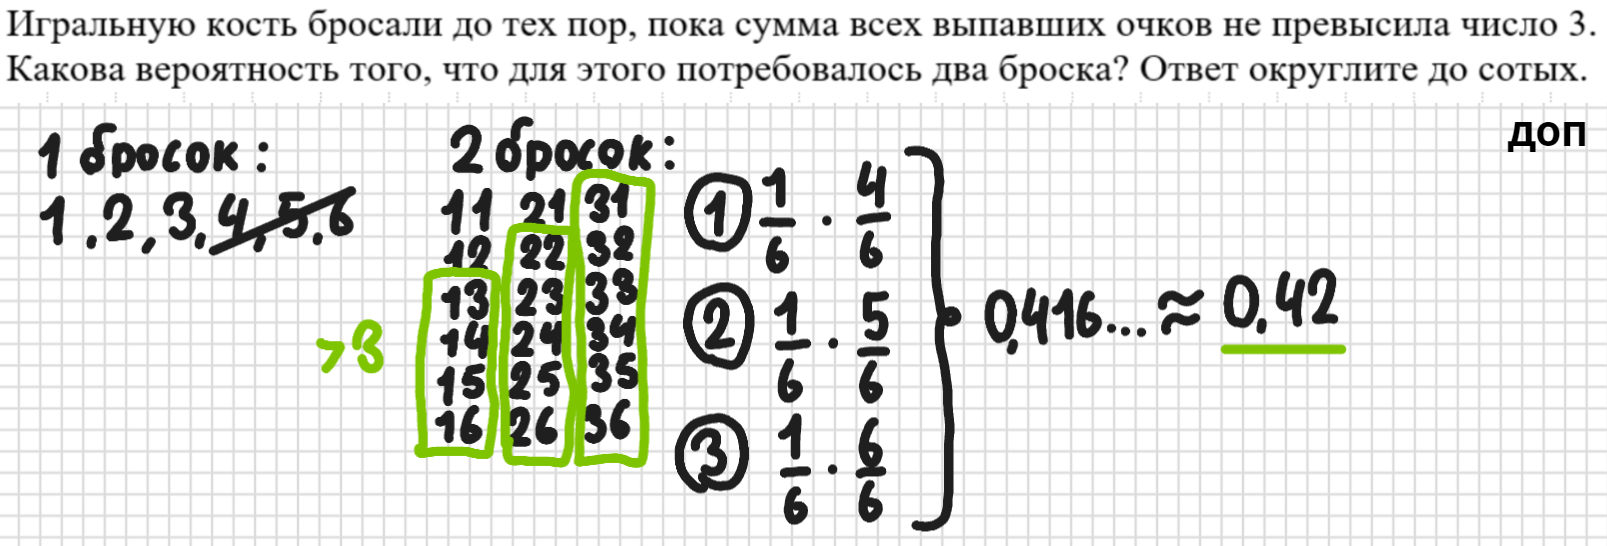 Игральную кость бросали до тех пор, пока сумма всех выпавших очков не превысила число 3.
Какова вероятность того, что для этого потребовалось два броска? Ответ округлите до сотых.
доп
1 бросок:
1,2,3,4,5,6
2 бросок:
11 21 31
12 22 32
13 23 33
14 24 34
15 25 35
16 26 36
>3
① 1/6 · 4/6
② 1/6 · 5/6
③ 1/6 · 6/6
0,416... ≈ 0,42